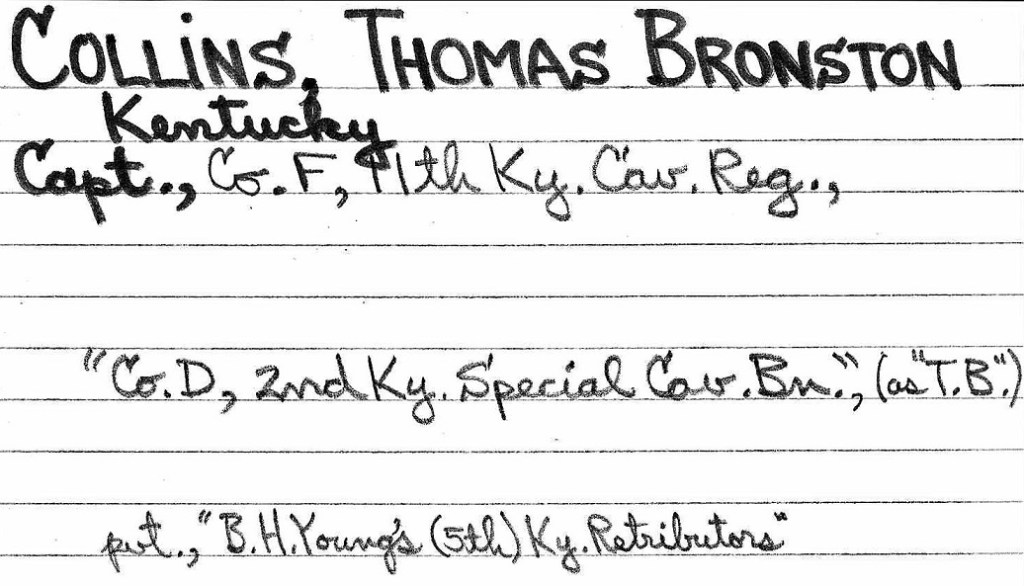 COLLINS, THOMAS BRONSTON
Kentucky
Capt., Co. F, 11th Ky. Cav. Reg.,
"Co. D, 2nd Ky. Special Cav. Bn.", (as "T.B.")
pvt., "B.H. Young's (5th) Ky. Retributors"